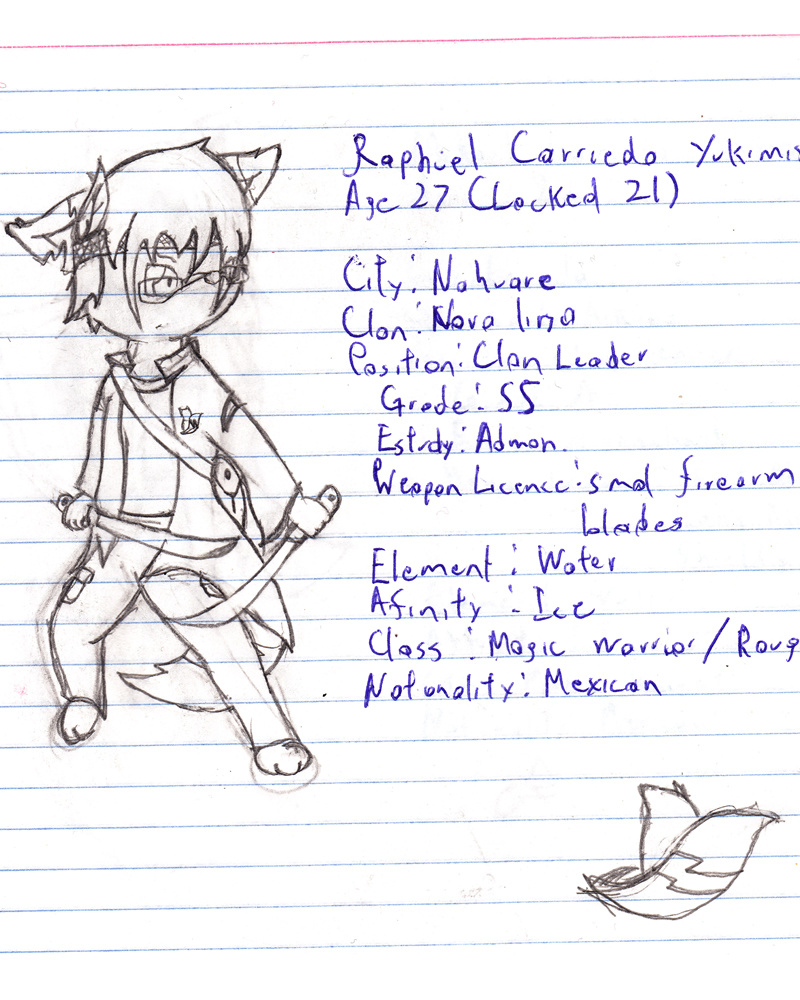 Raphiel Carriedo Yukimi
Age 27 (Locked 21)
City: Nohvare
Clan: Nova lina
Position: Clan Leader
Grade: SS
Estudy: Admon.
Weapon Licence: smal firearm
blades
Element: Water
Afinity: Ice
Class: Magic warrior/Roug
Nationality: Mexican